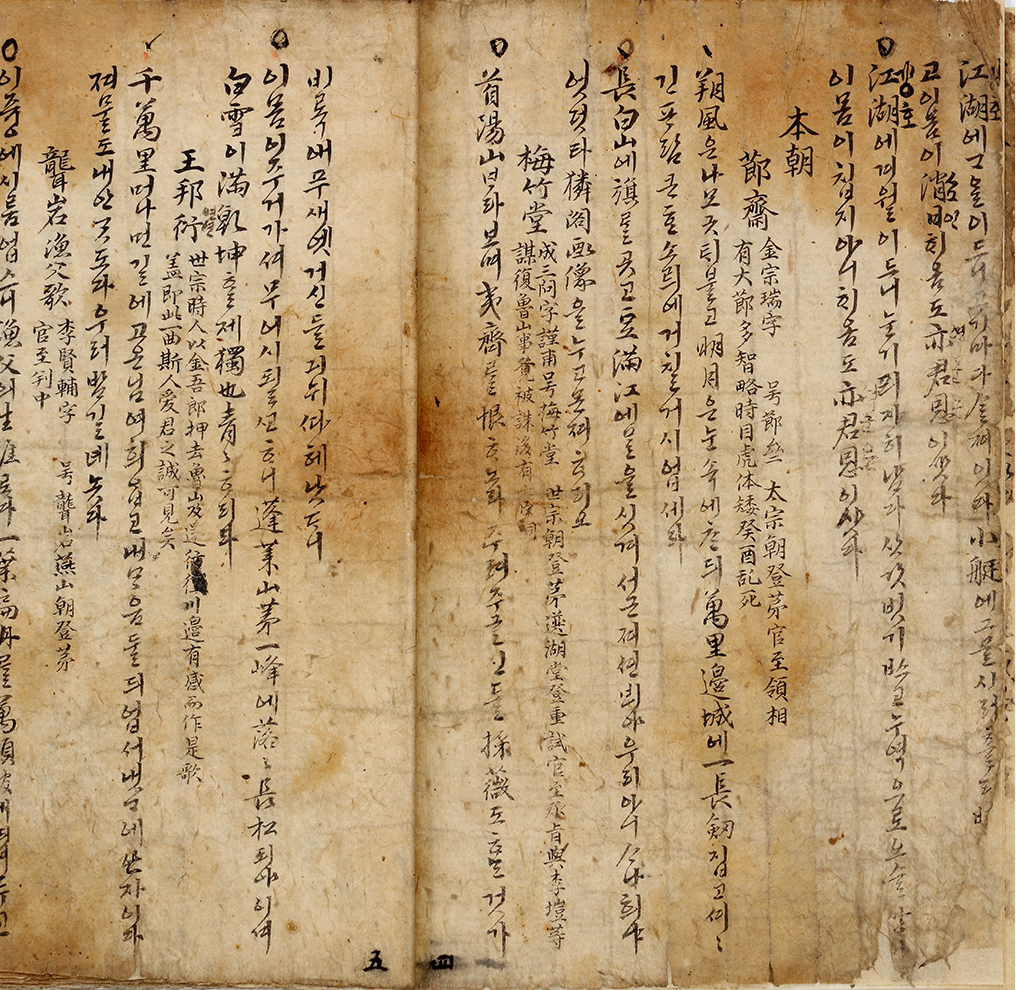 江湖에 ᄀᆞ을이 드니 고기마다 ᄉᆞᆯ져 잇다 小艇에 그믈 시러 흘니
고 이 몸이 消日ᄒᆡ옴도 亦君恩이샷다
江湖에 겨월이 드니 눈 기픠 자히 남다 삿갓 빗기 ᄡᅳ고 누역으로 오슬 삼아
이 몸이 칩지 아니ᄒᆡ옴도 亦君恩이샷다
本朝
節齋 金宗瑞字 号節齋 太宗朝登第官至領相
有大節多智略時目虎体矮癸酉乱死
朔風은 나모 긋ᄐᆡ 불고 明月은 눈 속에 ᄎᆞᆫᄃᆡ 萬里邊城에 一長劒 집고 셔〻
긴 ᄑᆞ람 큰 ᄒᆞᆫ 소ᄅᆡ에 거칠 거시 업세라
長白山에 旗를 곳고 豆滿江에 ᄆᆞᆯ을 싯겨 서근 져 션ᄇᆡ야 우리 아니 ᄉᆞ나희냐
엇덧타 獜閣画像을 누고 몬져 ᄒᆞ리오
梅竹堂 成三問字謹甫号梅竹堂 世宗朝登第選湖堂登重試官至承旨與李塏等
謀復魯山事覺被誅後有
首陽山 ᄇᆞ라보며 夷齊를 恨ᄒᆞ노라 주려 주글진들 採薇도 ᄒᆞᄂᆞᆫ 것가
비록애 푸새엣 거신들 긔 뉘 ᄯᅡ헤 낫ᄃᆞ니
이 몸이 주거 가셔 무어시 될고 ᄒᆞ니 蓬萊山 第一峰에 落〻長松 되야 이셔
白雪이 滿乾坤ᄒᆞᆯ 제 獨也青〻 ᄒᆞ리라
王邦衍 世宗時人以金吾郎押去魯山及還彷徨川邊有感而作是歌
盖即此 西斯人愛君之誠可見矣
千萬里 머나먼 길에 고온 님 여희ᄋᆞᆸ고 내 ᄆᆞᄋᆞᆷ 둘 ᄃᆡ 업서 냇ᄀᆞ에 안자이다
져 믈도 내 안 ᄀᆞᆺ도다 우러 밤길 녜놋다
聾岩漁父歌 李賢輔字 号聾岩燕山朝登第
官至判中
이 즁에 시름 업스니 漁父의 生涯로다 一葉扁舟를 萬頃波애 ᄯᅴ워 두고
四
五